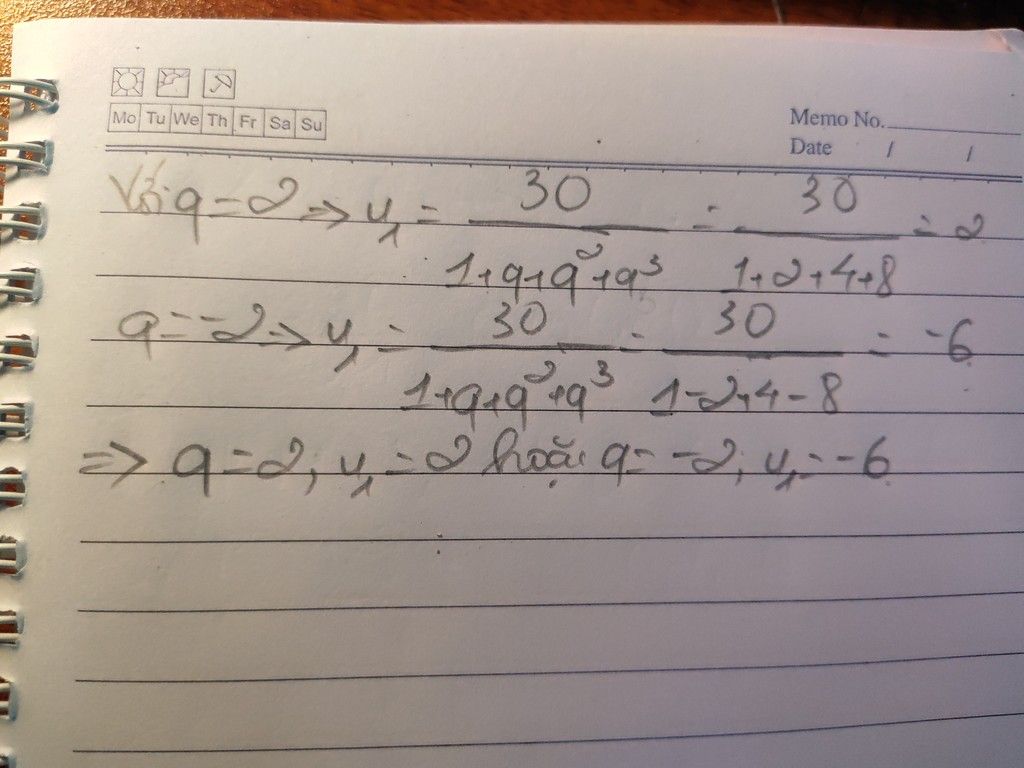 Mo Tu We Th Fr Sa Su
Memo No.
Date / /
Với q = 2 => u₁ = 30 / (1+q+q²+q³) = 30 / (1+2+4+8) = 2
q = -2 => u₁ = 30 / (1+q+q²+q³) = 30 / (1-2+4-8) = -6
=> q = 2; u₁ = 2 hoặc q = -2; u₁ = -6